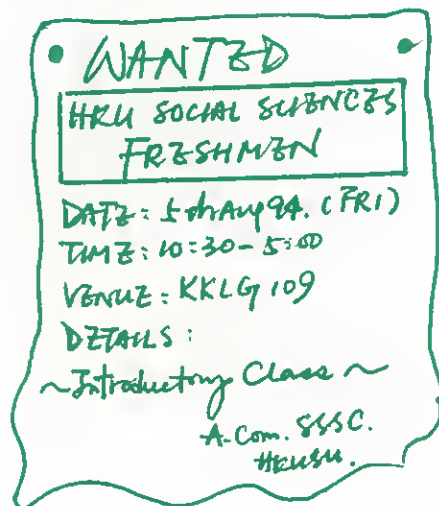 WANTED
HKU SOCIAL SCIENCES
FRESHMEN
DATE: 5th Aug 94. (FRI)
TIME: 10:30-5:00
VENUE: KKLG 109
DETAILS:
~Introductory Class~
A-Com. SSSC.
HKUSU.